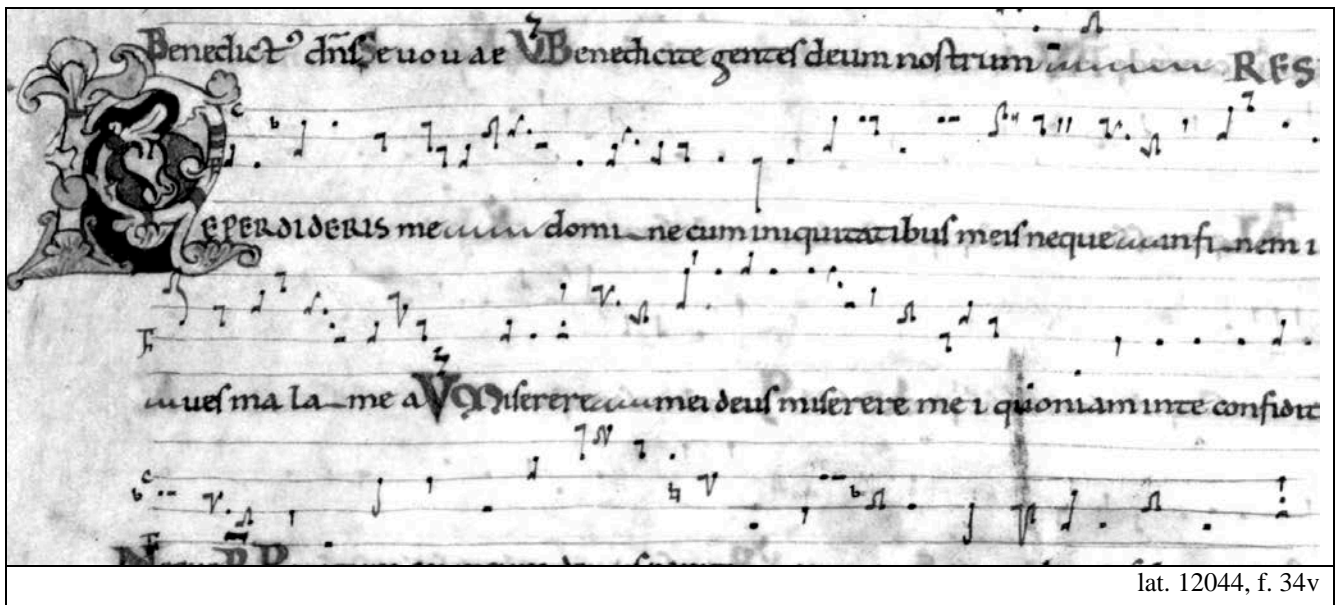 Benedict⁹ dn̄s Seuouae V Benedicite gentes deum nostrum RES
NEPERDIDERIS me domi_ne cum iniquitatibus meis neque in fi_nem i
ues ma la_me a V Miserere mei deus miserere me i quoniam in te confidit
lat. 12044, f. 34v